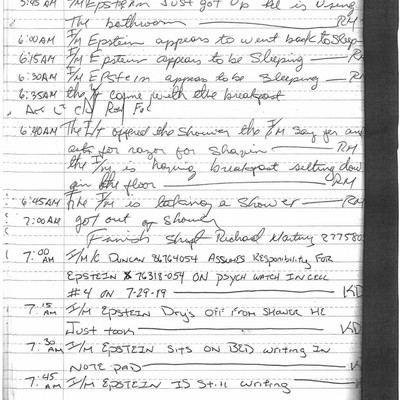 5:45AM I/M Epstein Just got up He is using
The bathroom RM
6:00AM I/M Epstein appears to went back to sleep
6:15AM I/M Epstein appears to be sleeping R
6:30AM I/M Epstein appears to be sleeping RM
6:35AM the I/I come with the breakfast
6:40AM The I/I offered the shower the I/M say yes and
asks for razor for shavin RM
the I/M is having breakfast sitting dow
on the floor RM
6:45AM The I/M is taking a shower RM
7:00AM got out of shower
Finish Shift Richard 277580
7:00 AM I/M K DUNCAN 86764054 ASSUMES RESPONSIBILITY FOR
EPSTEIN 76318-054 ON PSYCH WATCH IN CELL
#4 ON 7-29-19 KD
7:15 AM I/M EPSTEIN DRY'S OFF FROM SHOWER HE
JUST TOOK KD
7:30 AM I/M EPSTEIN SITS ON BED WRITING IN
NOTE PAD K
7:45 AM I/M EPSTEIN IS STILL WRITING K